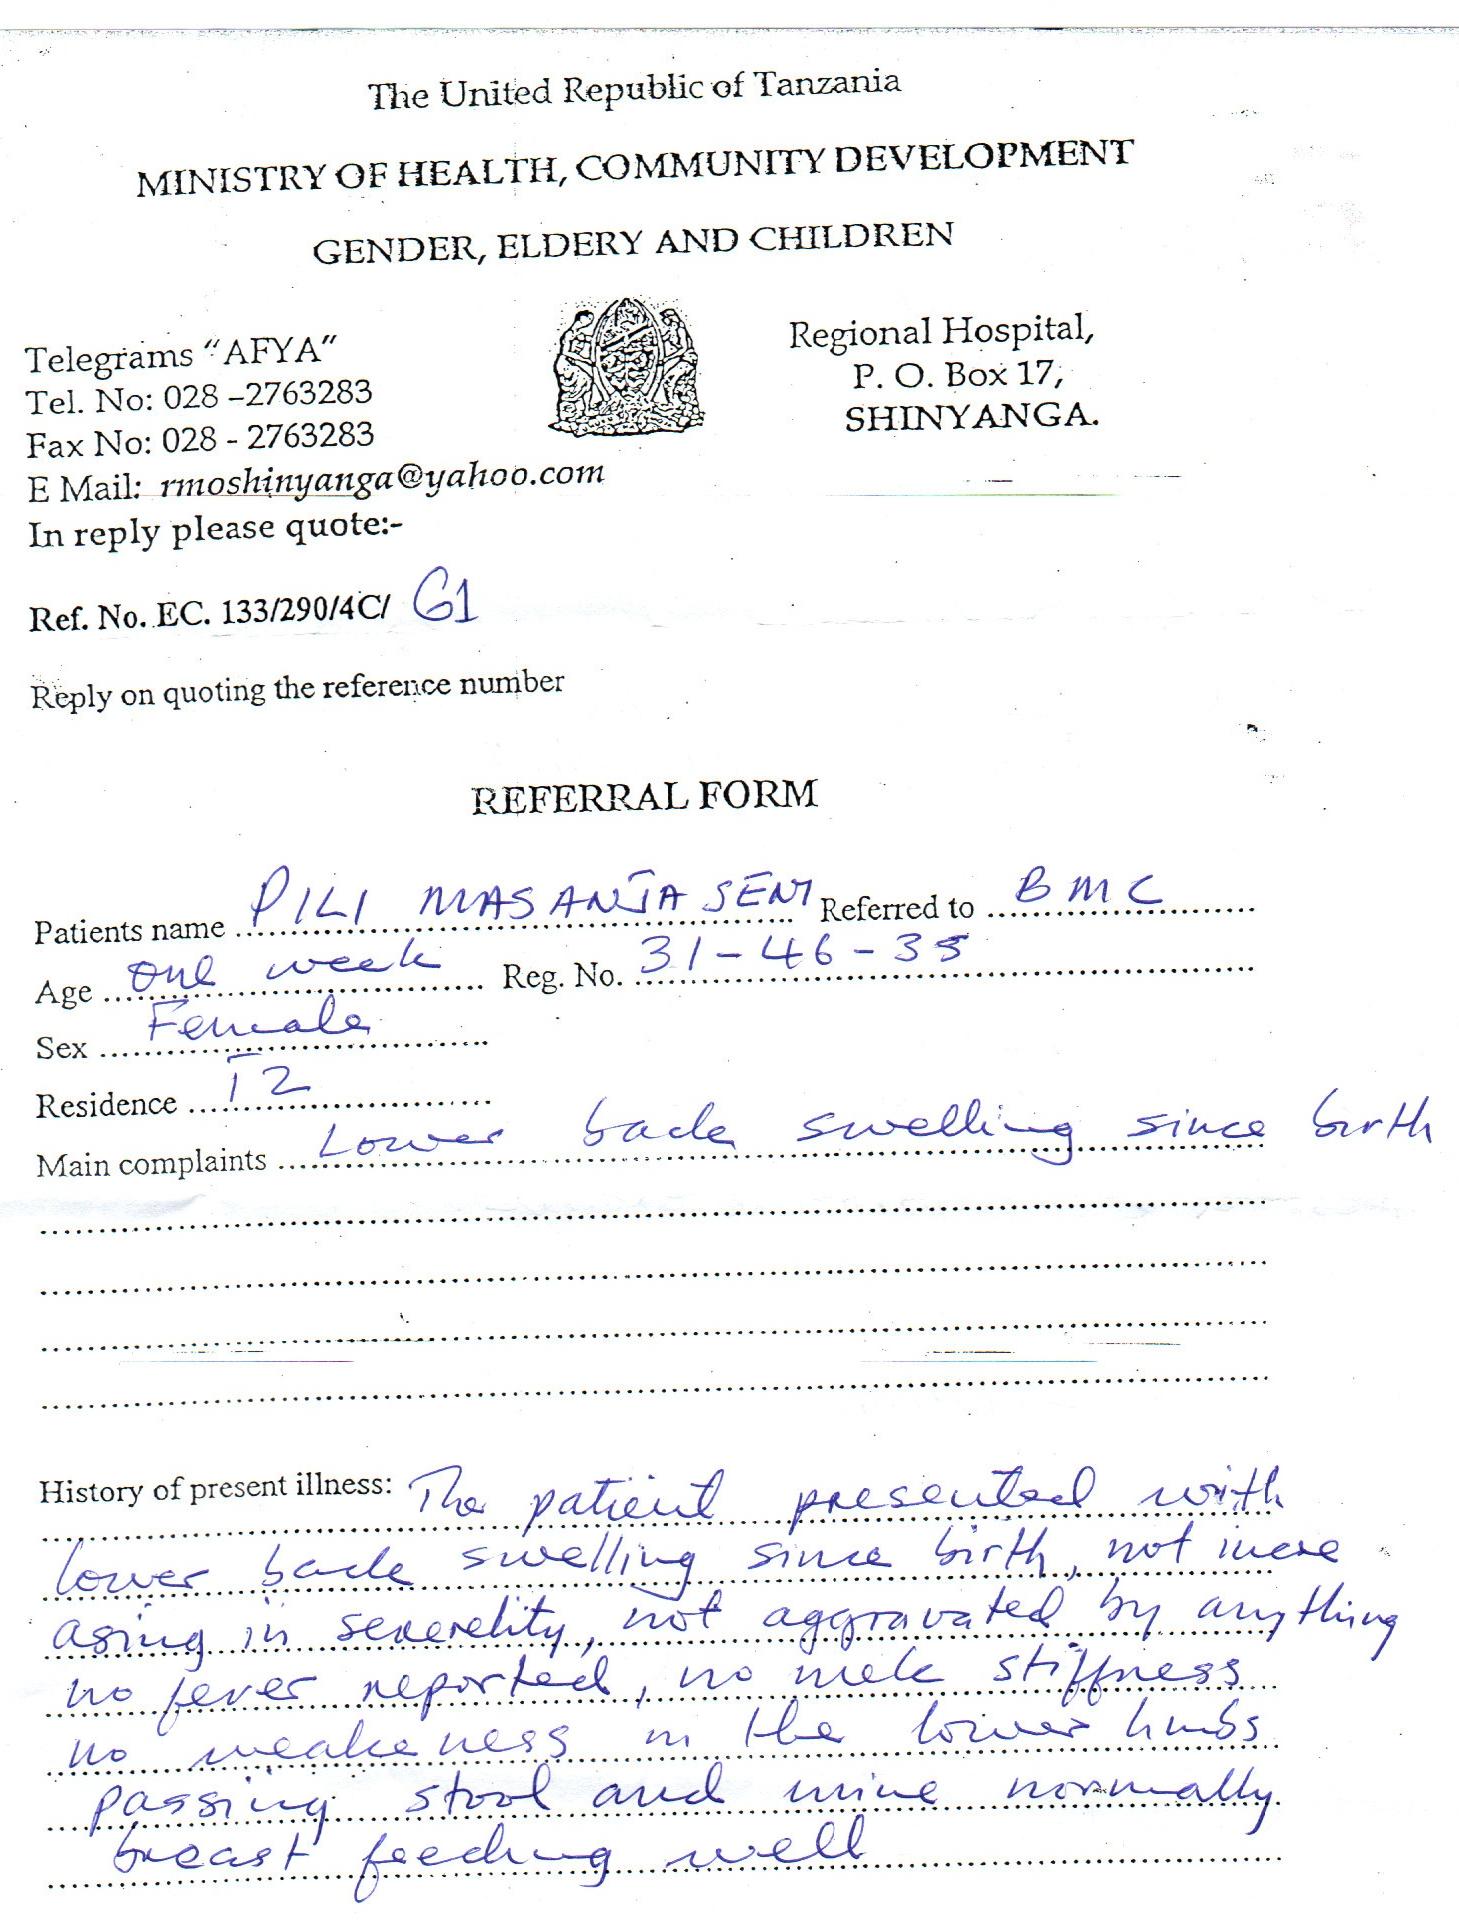 The United Republic of Tanzania
MINISTRY OF HEALTH, COMMUNITY DEVELOPMENT
GENDER, ELDERY AND CHILDREN
Telegrams “AFYA”
Tel. No: 028 –2763283
Fax No: 028 - 2763283
E Mail: rmoshinyanga@yahoo.com
In reply please quote:-
Regional Hospital,
P. O. Box 17,
SHINYANGA.
Ref. No. EC. 133/290/4C/ G1
Reply on quoting the reference number
REFERRAL FORM
Patients name PILI MASANJA SENI Referred to BMC
Age one week Reg. No. 31-46-35
Sex Female
Residence
Main complaints Lower back swelling since birth
History of present illness: The patient presented with
lower back swelling since birth, not increa
asing in severelity, not aggravated by anything
no fever reported, no neck stiffness
no weakeness in the lower limbs
passing stool and urine normally
breast feeding well